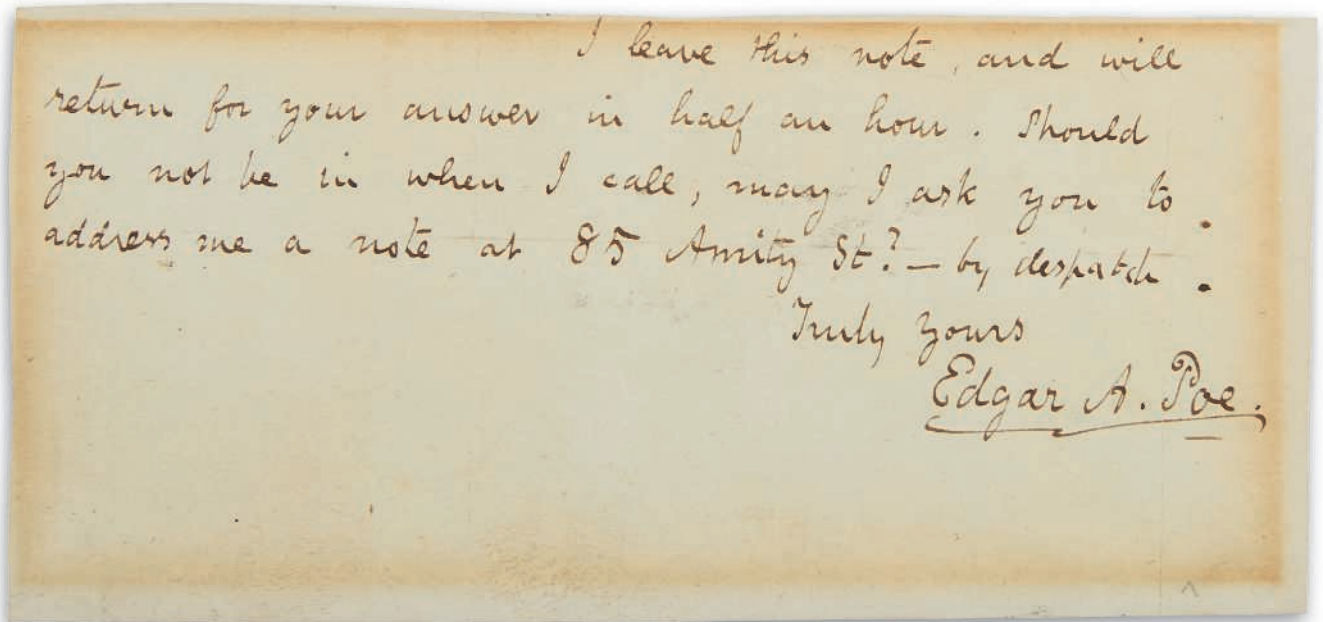 I leave this note, and will
return for your answer in half an hour. Should
you not be in when I call, may I ask you to
address me a note at 85 Amity St? — by despatch.
Truly yours
Edgar A. Poe.